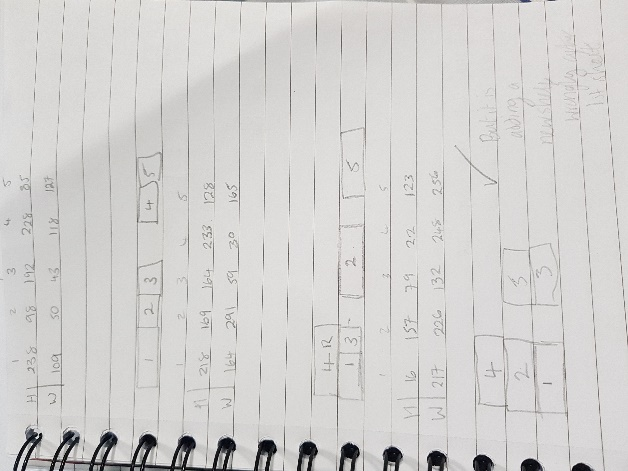 1 2 3 4 5
H 238 98 192 228 85
W 109 50 43 118 127
1 2 3 4 5
1 2 3 4 5
H 218 169 164 233 128
W 164 291 59 30 165
4-R
1 3 2 5
1 2 3 4 5
H 16 157 79 22 123
W 217 226 132 248 256
4
2 3
1 3
adding a
new shelf
1st shelf